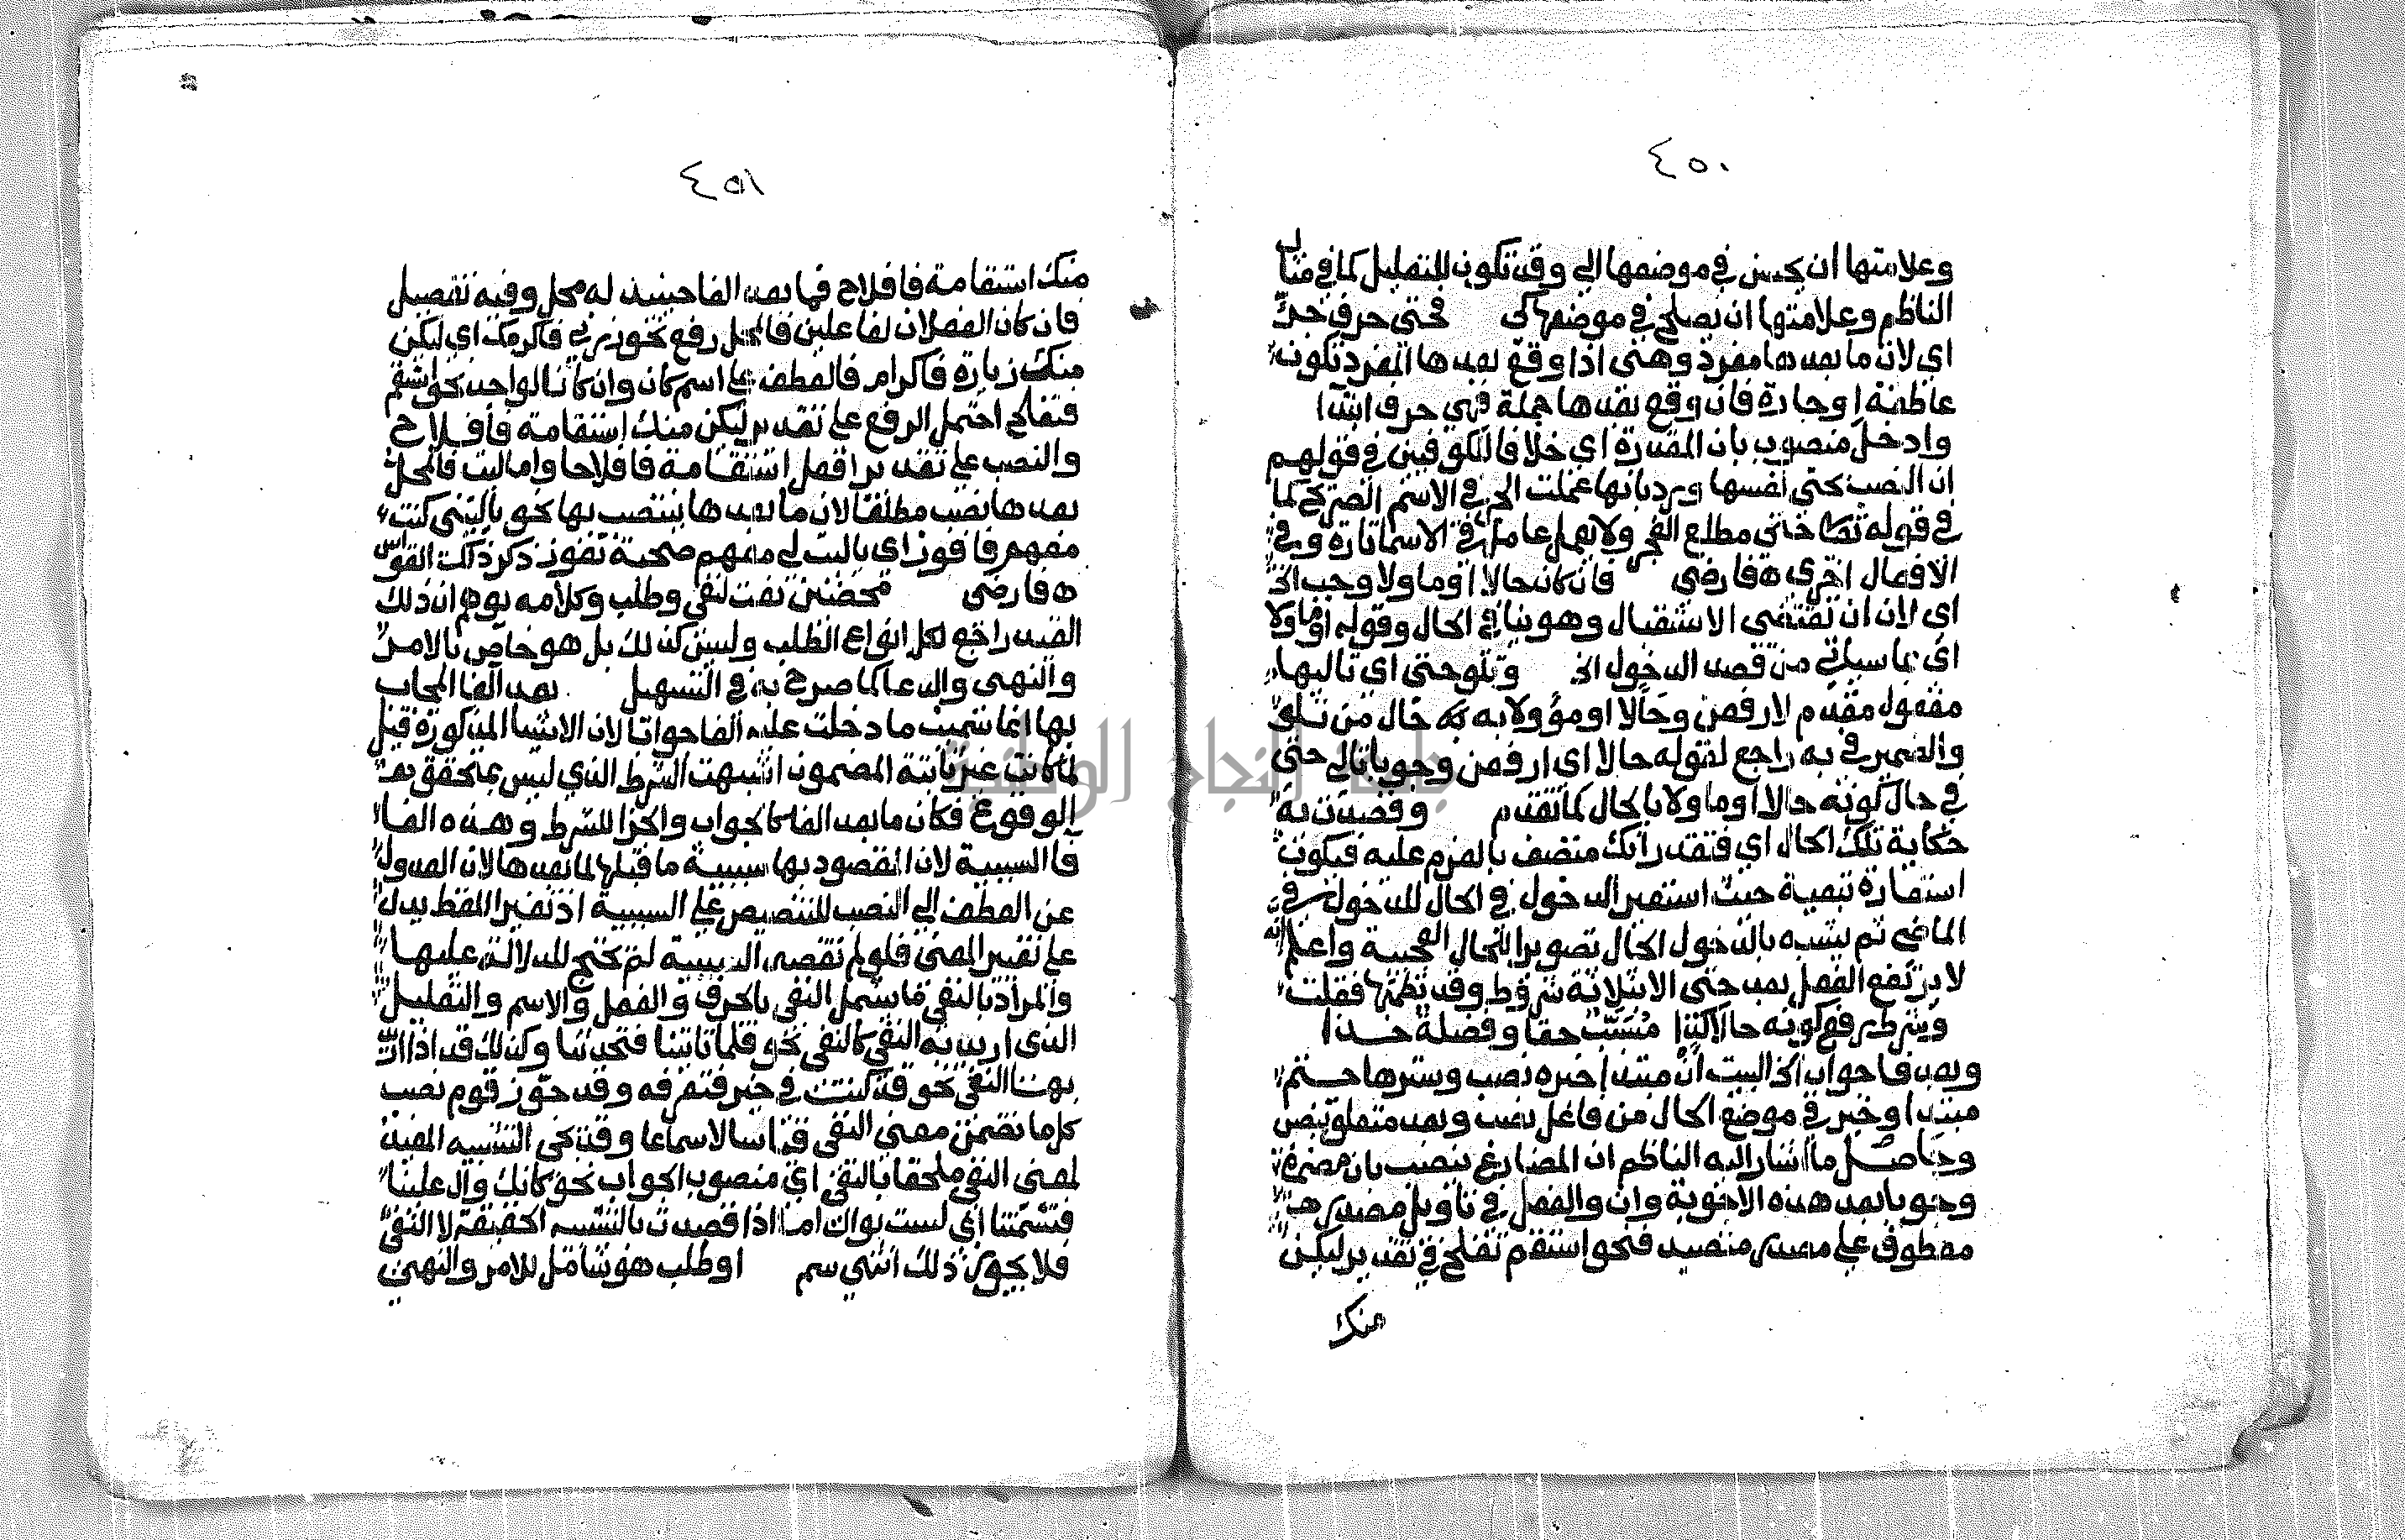 ٤٥٠
وعلامتها ان يحسن في موضعها الي وقد تكون للتعليل كما في مثال
الناظم وعلامتها ان تصلح في موضعها كى فحتى حرف جر
اي لان ما بعدها مفرد وهتى اذا وقع بعدها المفرد تكون
عاطفة او جارة فان وقع بعدها جملة فهي حرف ابتدا
وادخل منصوب بان المقدرة اي خلافا للكوفيين في قولهم
ان النصب بحتى نفسها ورد بانها عملت الجر في الاسم الصريح كما
في قوله تعالى حتى مطلع الفجر ولا يعمل عامل في الاسما تارة وفي
الافعال اخرى ه فارضى فان كان حالا او ماولا وجب الخ
اي لان ان تقتضى الاستقبال وهو ينافي الحال وقوله او ماولا
اي بما سياتي من قصد الدخول الخ وتلو حتى اي تاليها
مفعول مقدم لارفعن وحالا او مؤولا به حال من تلو
والضمير في به راجع لقوله حالا اي ارفعن وجوبا تالي حتى
في حال كونه حالا او ماولا بالحال كما تقدم وقصدت به
حكاية تلك الحال اي فتقدر انك متصف بالعزم عليه فيكون
استعارة تبعية حيث استعير الدخول في الحال للدخول في
الماضي ثم يشبه بالدخول الحال تصويرا للحال العجيبة واعلم انه
لا يرتفع الفعل بعد حتى الا بثلاثة شروط وقد نظمتها فقلت
وشرط رفع كونه حالا كذا مسبب حقا وفضلة خذا
وبعد فا جواب الخ البيت ان مبتدا خبره نصب وسترها حتم
مبتدا وخبر في موضع الحال من فاعل نصب وبعد متعلق بنصب
وحاصل ما اشار اليه الناظم ان المضارع ينصب بان مضمرة
وجوبا بعد هذه الاجوبة وان والفعل في تاويل مصدر
معطوف علي مصدر متصيد فنحو استقم تفلح في تقدير ليكن
منك
٤٥١
منك استقامة فافلاح فما بعد الفا حينيذ له محل وفيه تفصيل
فان كان الفعلان لفاعلين فالمحل رفع نحو زرني فاكرمك اي ليكن
منك زيارة فاكرام فالعطف على اسم كان وان كانا لواحد نحو استقم
فتفلح احتمل الرفع على تقدير ليكن منك استقامة فافلاح
والنصب على تقدير افعل استقامة فافلاحا واما ليت فالمحل
بعدها نصب مطلقا لان ما بعدها ينتصب بها نحو ياليتني كنت
معهم فافوز اي ياليت لي معهم صحبة ففوز ذكر ذلك القواس
ه فارضى محضين نعت لنفي وطلب وكلامه يوهم ان ذلك
القيد راجع لكل انواع الطلب وليس كذلك بل هو خاص بالامر
والنهى والدعا كما صرح به في التسهيل بعد الفا المجاب
بها انما سميت ما دخلت عليه الفا جوابا لان الاشيا المذكورة قبل
لما كانت غير ثابتة المضمون اشبهت الشرط الذي ليس بمتحقق
الوقوع فكان ما بعد الفا كالجواب والجزا للشرط وهذه الفا
فا السببية لان المقصود بها سببية ما قبلها لما بعدها لان العدول
عن العطف الي النصب للتنصيص على السببية اذ تغير اللفظ يدل
على تغير المعنى فلو لم تقصد السببية لم يحتج للدلالة عليها
والمراد بالنفى ما يشمل النفى بالحرف والفعل والاسم والتقليل
الذى اريد به النفى كالنفى نحو قلما تاتينا فتحدثنا وكذلك قد اذا
بها النفى نحو قد كنت في خير فتعرفه وقد جوز قوم نصب
كل ما تضمن معنى النفى قياسا لا سماعا وقد حكى التشبيه المفيد
لمعنى النفى ملحقا بالنفى اي منصوب الجواب نحو كانك وال علينا
فتشتمنا اي لست بوال اما اذا قصدت بالتشبيه الحقيقة لا النفى
فلا يجوز ذلك انتهي سم او طلب هو شامل للامر والنهى